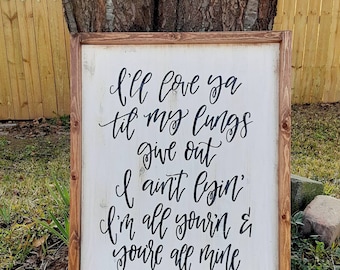 I'll love ya
'til my lungs
give out
I aint lyin'
I'm all your'n &
you're all mine